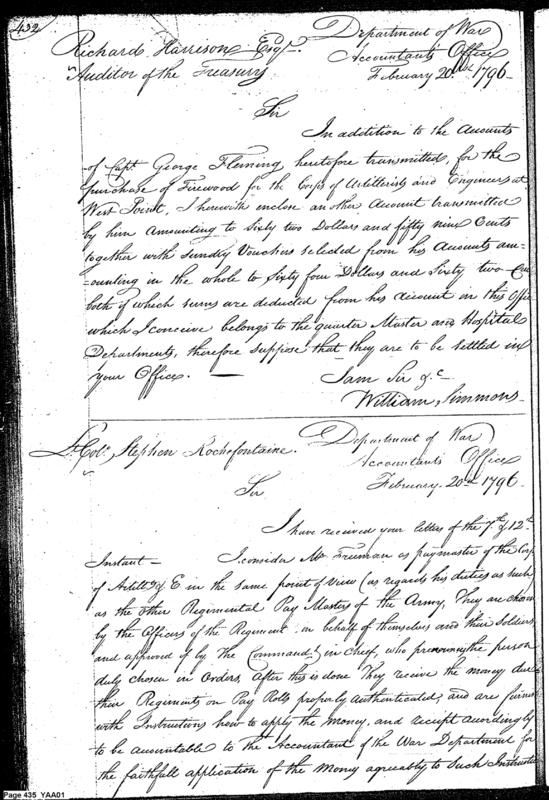 432
Richard Harrison Esqr.
Auditor of the Treasury
Department of War
Accountants Office
February 20th 1796
Sir
In addition to the Accounts
of Capt. George Fleming heretofore transmitted, for the
purchase of Firewood for the Corps of Artillerists and Engineers at
West Point, I herewith enclose another Account transmitted
by him Amounting to Sixty two Dollars and fifty nine Cents
together with sundry Vouchers selected from his Accounts am-
-ounting in the whole to Sixty four Dollars and Sixty two Cen
both of which sums are deducted from his account in this Offic
which I conceive belongs to the quarter Master and Hospital
Departments, therefore suppose that they are to be settled in
your Office. —
I am Sir &c
William Simmons
Lt. Colo. Stephen Rochefontaine.
Department of War
Accountants Office
February 20th 1796
Sir
I have received your letters of the 7th & 12th
Instant — I consider Mr. Freeman as paymaster of the Corp
of Artills & E in the same point of View (as regards his duties as such
as the other Regimental Pay Masters of the Army, They are chosen
by the Officers of the Regiment in behalf of themselves and their Soldiers
and approved of by The Commandt. in Cheif, who pronounces the person
duly chosen in Orders, After this is done They receive the money due
their Regiments on Pay Rolls properly authenticated, and are furnis
with Instructions how to apply the Money, and receipt accordingly
to be accountable to the Accountant of the War Department for
the faithfull application of the Money agreeably to Such Instructio
Page 435 YAA01